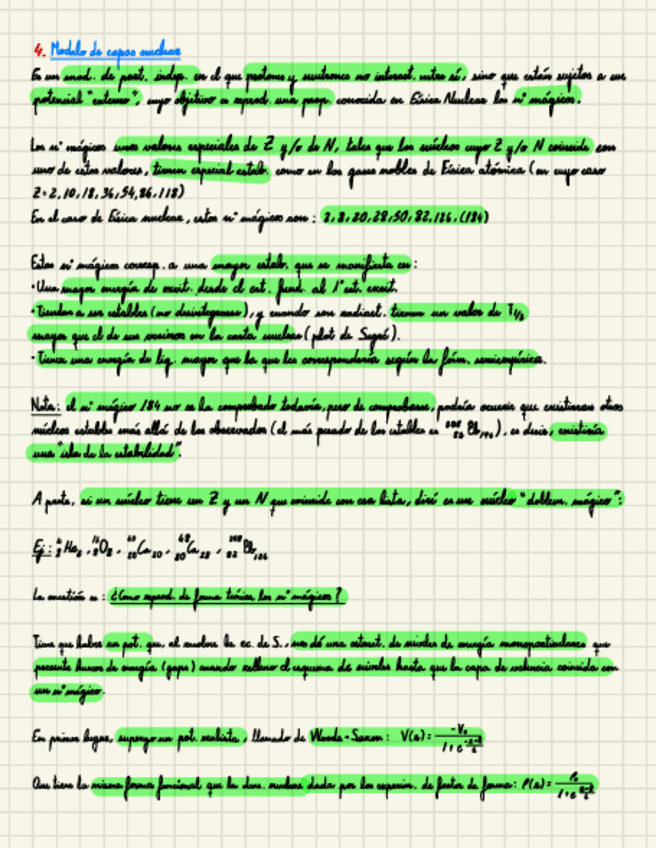 4. Modelo de capas nuclear
Es un mod. de part. indep. en el que protones y neutrones no interact. entre sí, sino que están sujetos a un
potencial "externo", cuyo objetivo es reprod. una prop. conocida en Física Nuclear los nº mágicos.
Los nº mágicos unos valores especiales de Z y/o de N, tales que los núcleos cuyo Z y/o N coincide con
uno de estos valores, tienen especial estab. como en los gases nobles de Física atómica (en cuyo caso
Z=2,10,18,36,54,86,118)
En el caso de Física nuclear, estos nº mágicos son: 2,8,20,28,50,82,126,(184)
Estos nº mágicos corresp. a una mayor estab. que se manifiesta en:
·Una mayor energía de excit. desde el est. fund. al 1º est. excit.
·Tienden a ser estables (no desintegrarse), y cuando son radiact. tienen un valor de T1/2
mayor que el de sus vecinos en la carta nuclear (plot de Segré).
·Tienen una energía de lig. mayor que la que les correspondería según la fórm. semiempírica.
Nota: el nº mágico 184 no se ha comprobado todavía, pero de comprobarse, podría ocurrir que existieran otros
núcleos estables más allá de los observados (el más pesado de los estables es ²⁰⁸₈₂Pb₁₂₆), es decir, existiría
una "isla de la estabilidad".
A parte, si un núcleo tiene un Z y un N que coincide con esa lista, diré es un núcleo "doblem. mágico":
Ej: ⁴₂He₂, ¹⁶₈O₈, ⁴⁰₂₀Ca₂₀, ⁴⁸₂₀Ca₂₈, ²⁰⁸₈₂Pb₁₂₆
La cuestión es: ¿Cómo reprod. de forma teórica los nº mágicos?
Tiene que haber un pot. que, al resolver la ec. de S., nos dé una estruct. de niveles de energía monoparticulares que
presente huecos de energía (gaps) cuando relleno el esquema de niveles hasta que la capa de valencia coincida con
un nº mágico.
En primer lugar, supongo un pot. realista, llamado de Woods-Saxon: V(r)= -V₀ / 1+e^(r-R/a)
Que tiene la misma forma funcional que la dens. nuclear dada por los experim. de factor de forma: ρ(r)= ρ₀ / 1+e^(r-R/a)